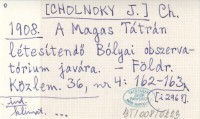 [CHOLNOKY J.] Ch.
1908. A Magas Tátrán
létesítendő Bólyai obszerva-
tórium javára. – Földr.
Közlem. 36, nr 4: 162-163,
[i 2963].
ind.
klimat. ...